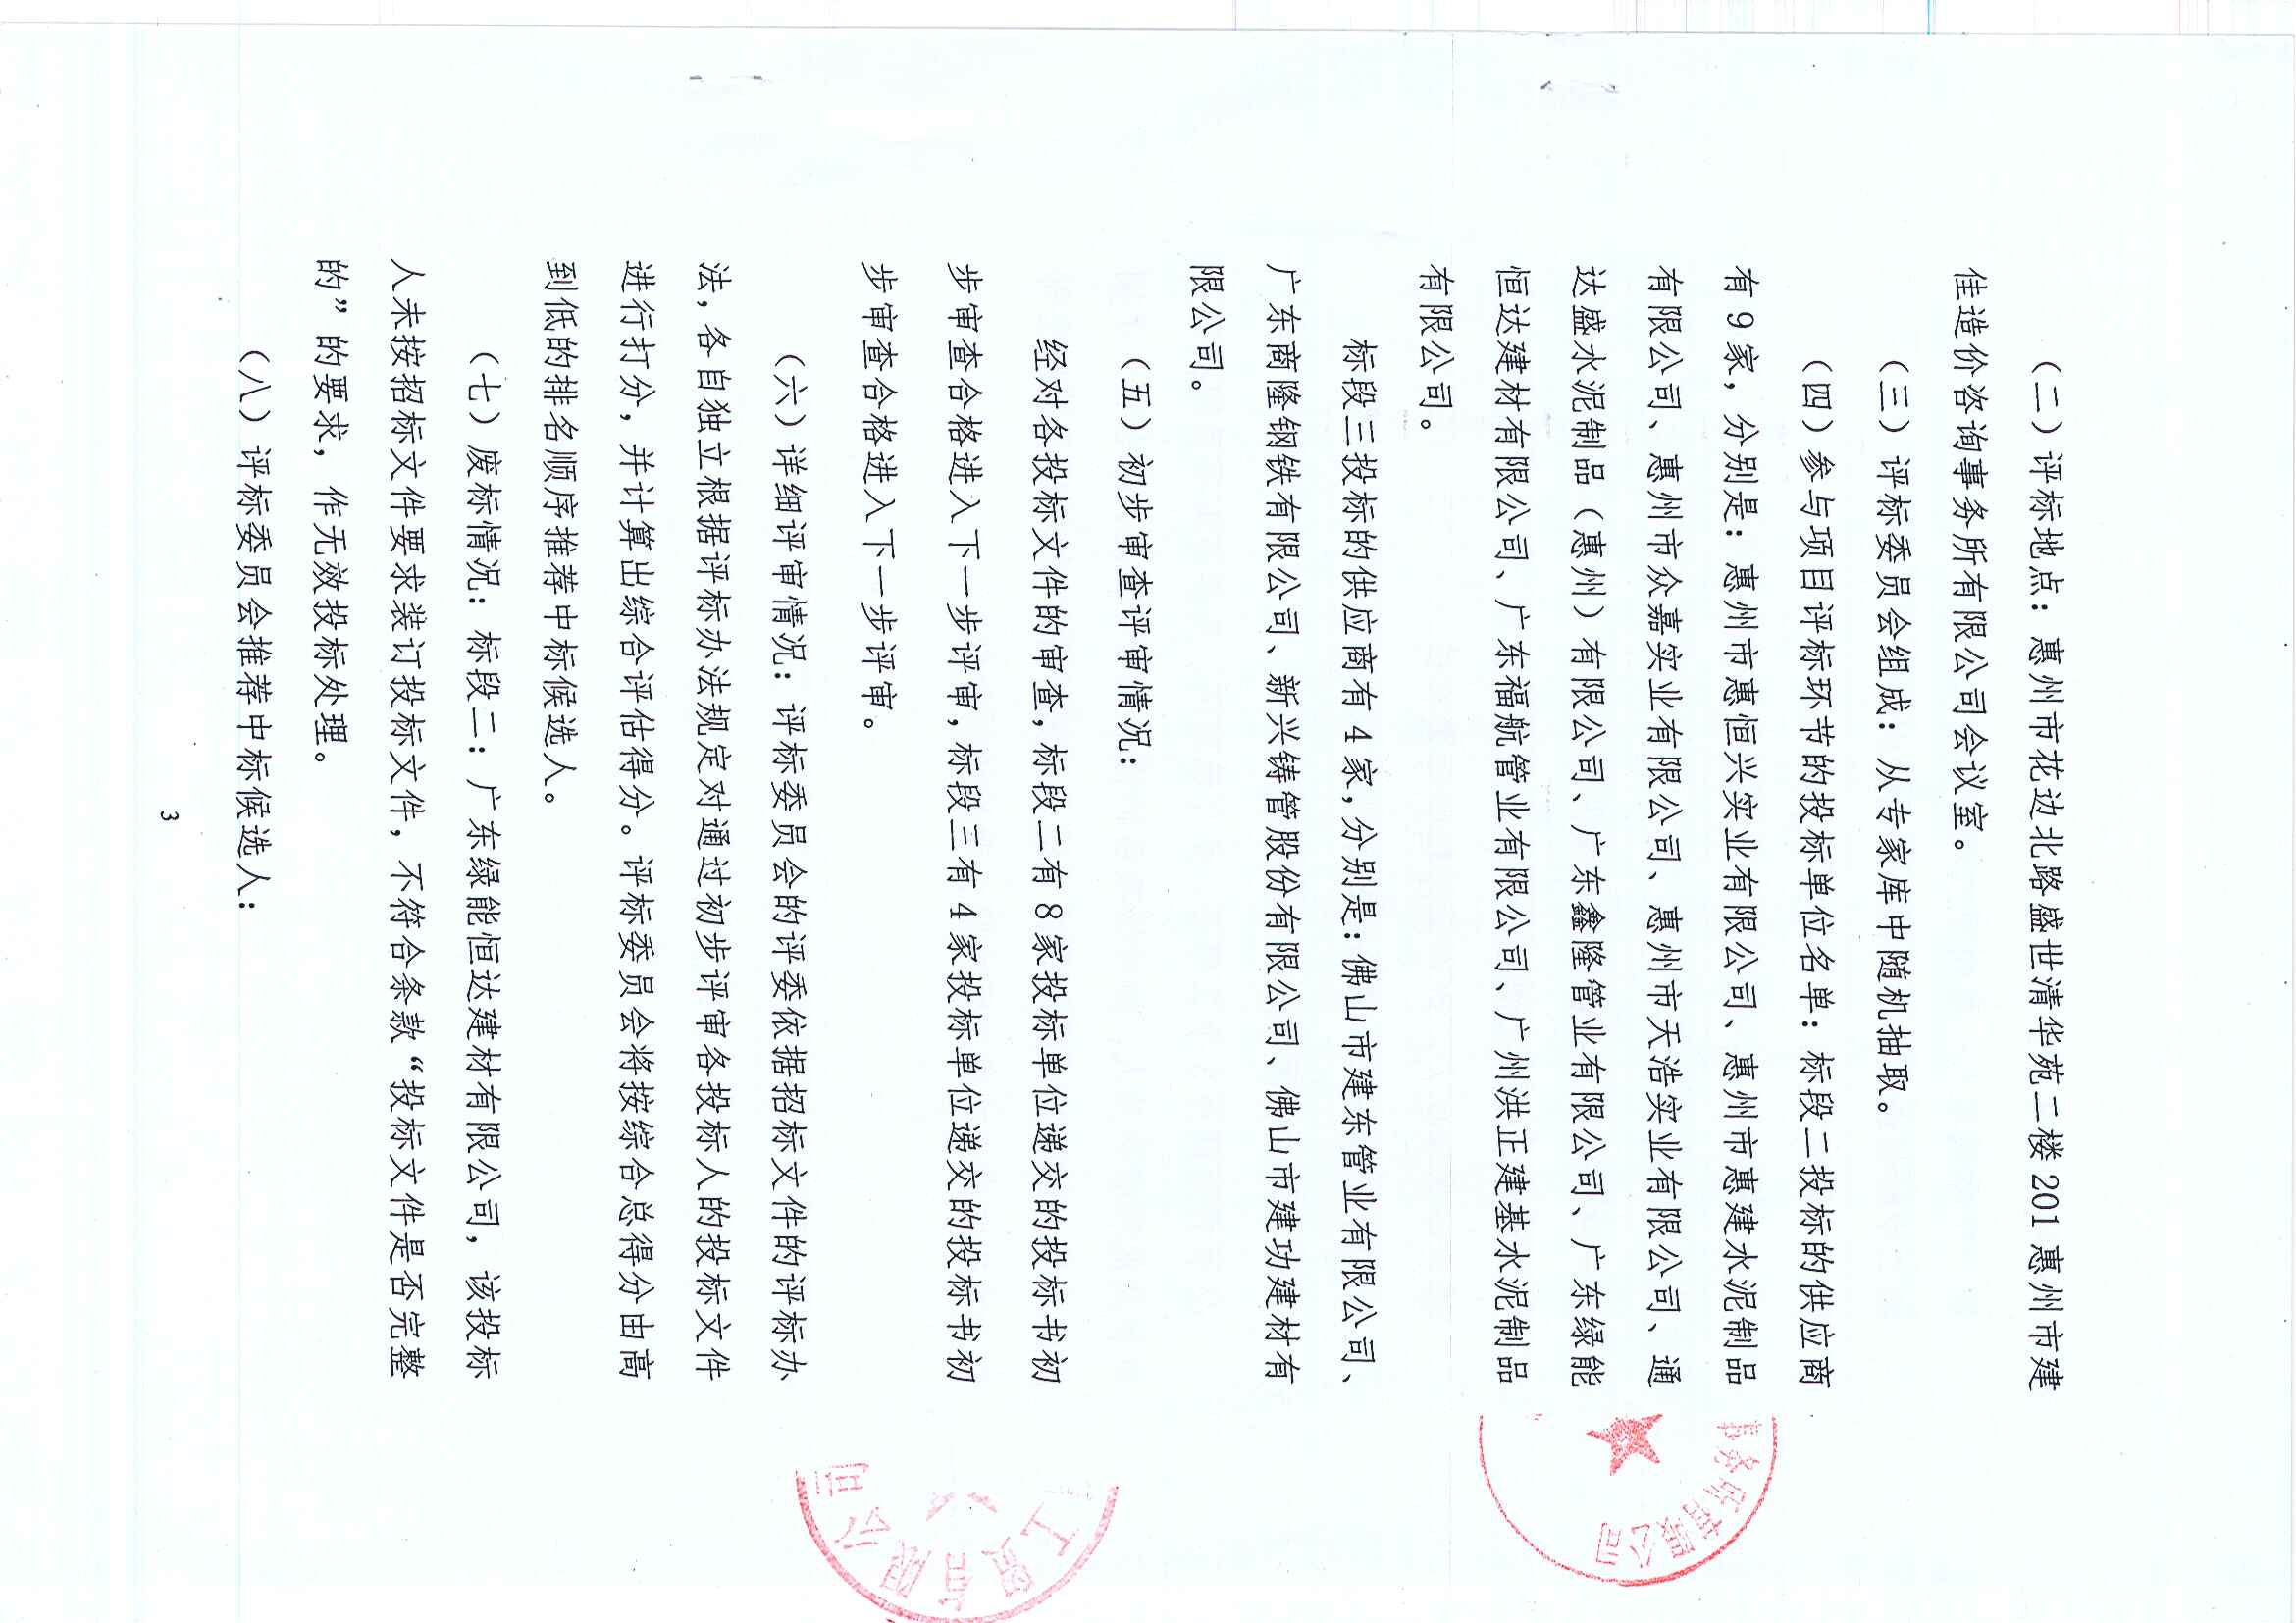 （二）评标地点：惠州市花边北路盛世清华苑二楼 201 惠州市建
佳造价咨询事务所有限公司会议室。
（三）评标委员会组成：从专家库中随机抽取。
（四）参与项目评标环节的投标单位名单：标段二投标的供应商
有 9 家，分别是：惠州市惠恒兴实业有限公司、惠州市惠建水泥制品
有限公司、惠州市众嘉实业有限公司、惠州市天浩实业有限公司、通
达盛水泥制品（惠州）有限公司、广东鑫隆管业有限公司、广东绿能
恒达建材有限公司、广东福航管业有限公司、广州洪正建基水泥制品
有限公司。
标段三投标的供应商有 4 家，分别是：佛山市建东管业有限公司、
广东商隆钢铁有限公司、新兴铸管股份有限公司、佛山市建功建材有
限公司。
（五）初步审查评审情况：
经对各投标文件的审查，标段二有 8 家投标单位递交的投标书初
步审查合格进入下一步评审，标段三有 4 家投标单位递交的投标书初
步审查合格进入下一步评审。
（六）详细评审情况：评标委员会的评委依据招标文件的评标办
法，各自独立根据评标办法规定对通过初步评审各投标人的投标文件
进行打分，并计算出综合评估得分。评标委员会将按综合总得分由高
到低的排名顺序推荐中标候选人。
（七）废标情况：标段二：广东绿能恒达建材有限公司，该投标
人未按招标文件要求装订投标文件，不符合条款“投标文件是否完整
的”的要求，作无效投标处理。
（八）评标委员会推荐中标候选人：
3
事务所有限公司
工贸有限公司